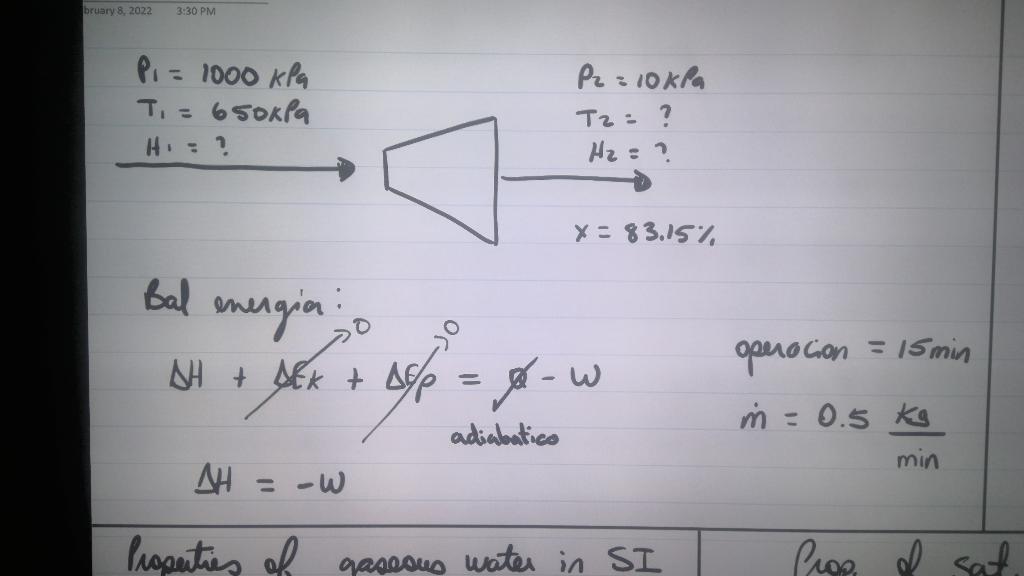 bruary 8, 2022 3:30 PM
P1 = 1000 kPa
T1 = 650 kPa
H1 = ?
P2 = 10 kPa
T2 = ?
H2 = ?
x = 83.15%
Bal energia:
0 0
ΔH + ΔEk + ΔEp = Q - W
adiabatico
ΔH = -W
operacion = 15 min
ṁ = 0.5 kg
min
Properties of gaseous water in SI
Prop. of sat.